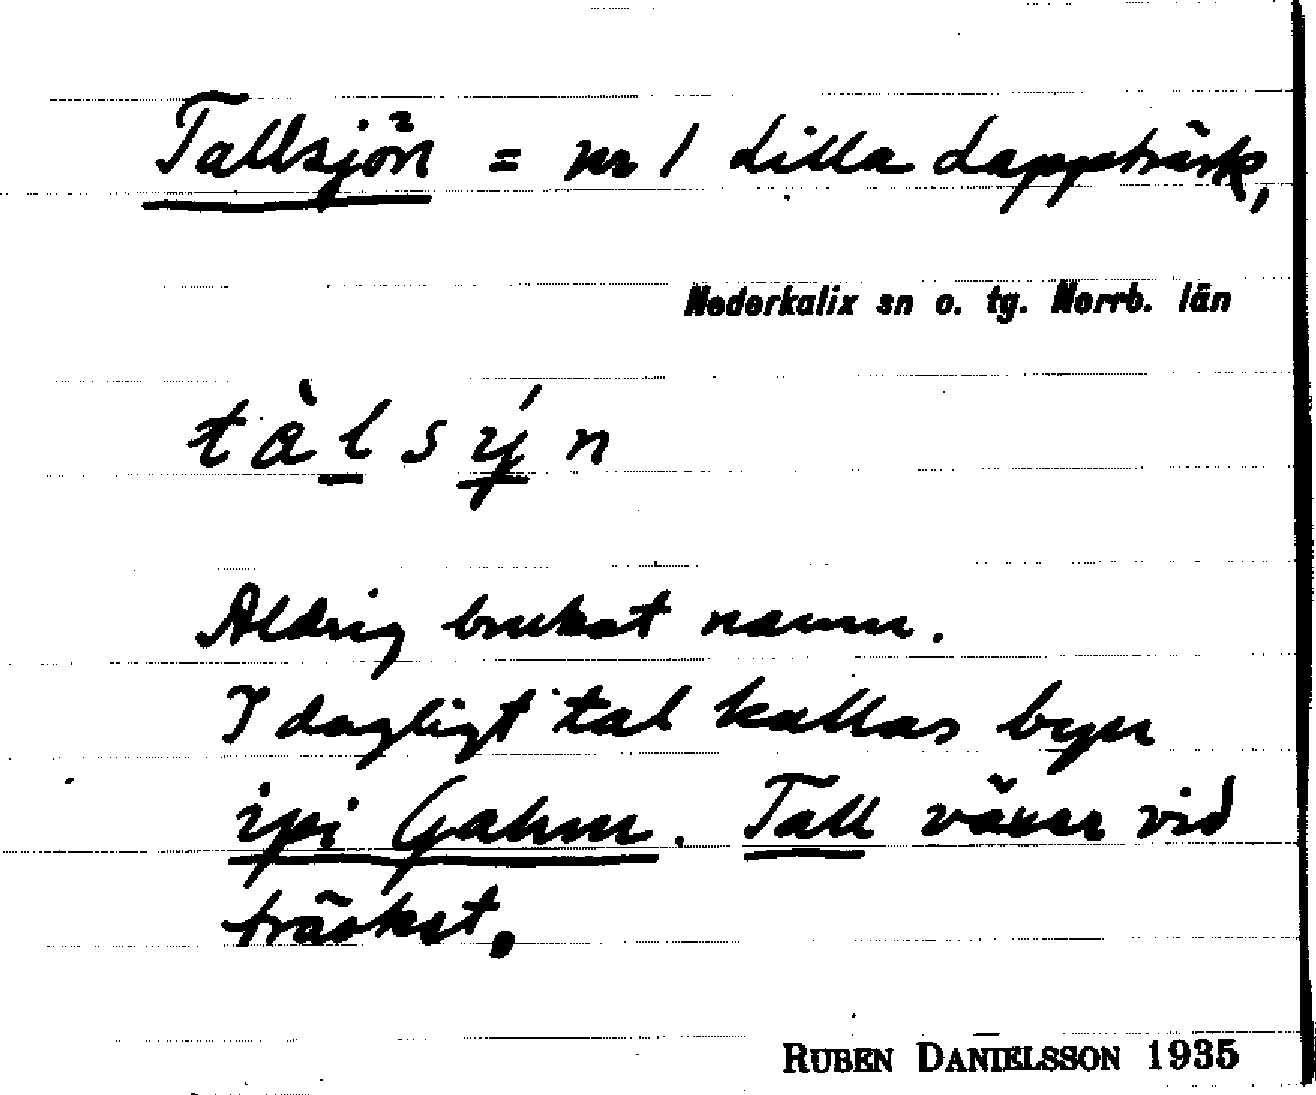 Tallsjön = nr 1 Lilla Lappträsk,
Nederkalix sn o. tg. Norrb. län
tàlsýn
Aldrig brukat namn.
I dagligt tal kallas byn
ipi Gahm. Tall växer vid
träsket.
RUBEN DANIELSSON 1935